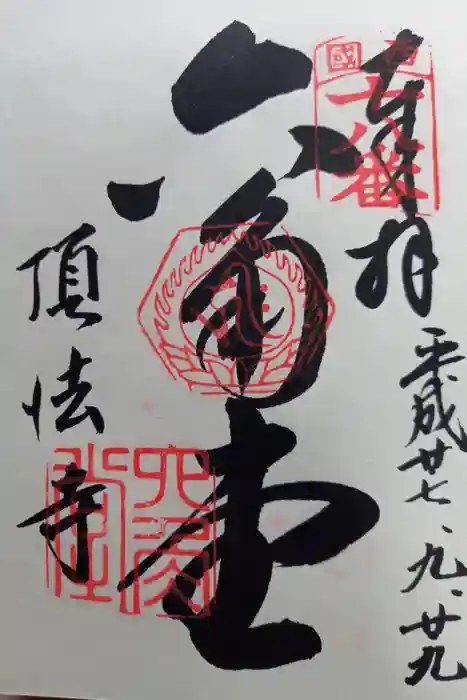 奉拝
平成廿七、九、廿九
西國
十八番
六角堂
頂法寺
六角堂